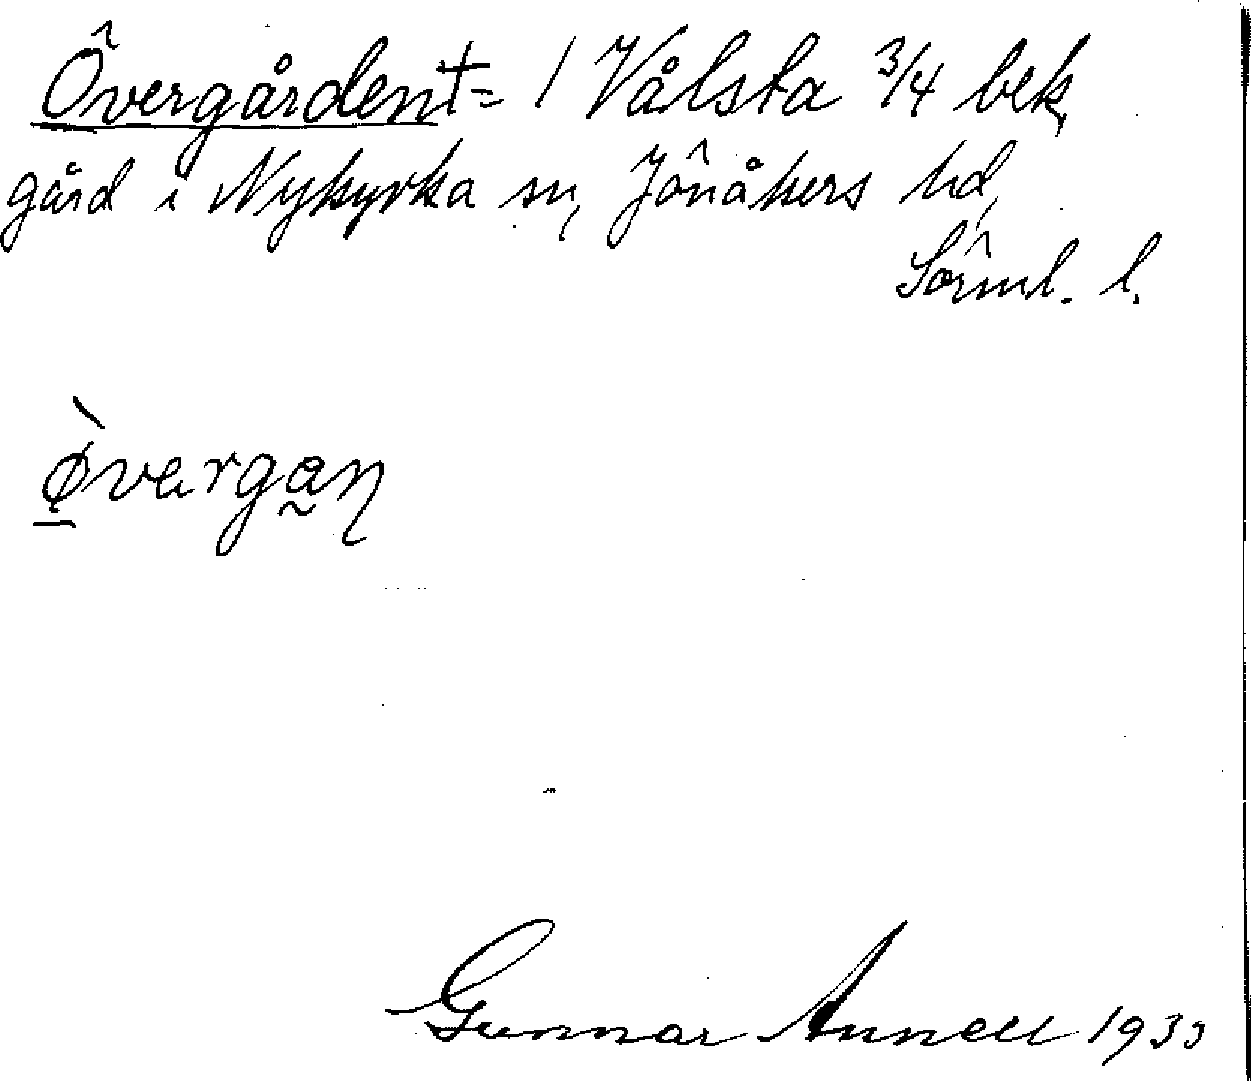 Övergården† = 1 Vålsta 3/4 bek,
gård i Nykyrka sn, Jönåkers hd,
Sörml. l.
ø̀vergan
Gunnar Annell 1933